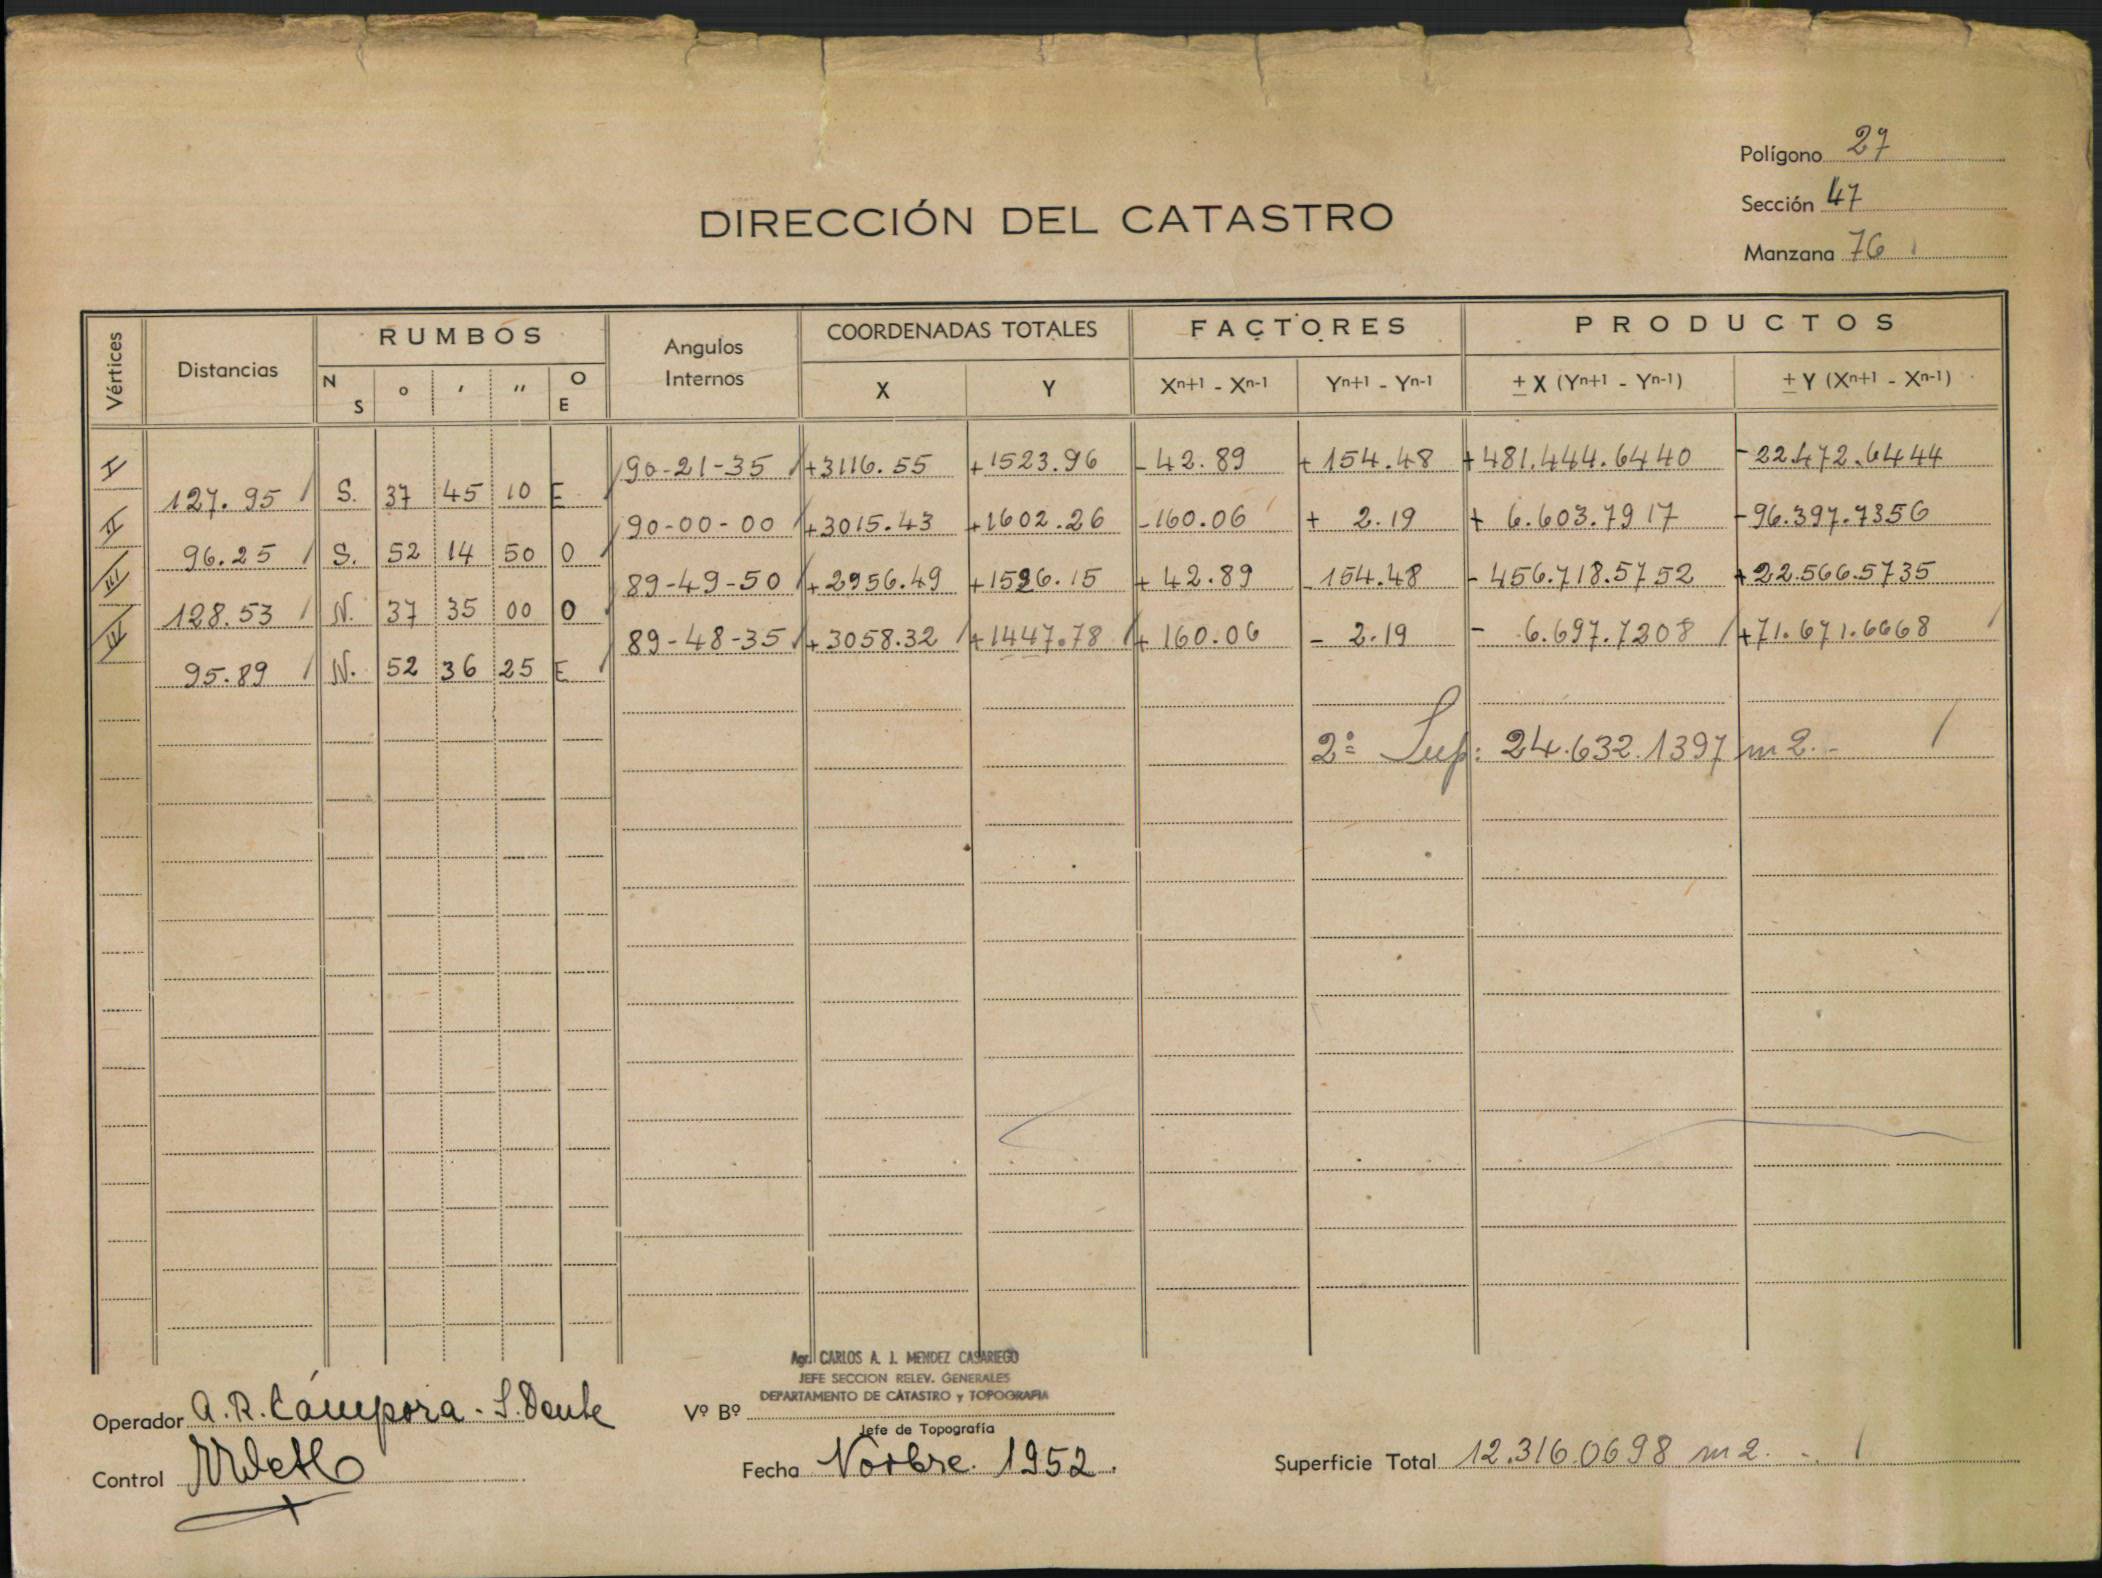 Polígono 27
Sección 47
Manzana 76
DIRECCIÓN DEL CATASTRO
Vértices Distancias RUMBOS Angulos Internos COORDENADAS TOTALES FACTORES PRODUCTOS
N S o ′ ″ O E X Y Xn+1 - Xn-1 Yn+1 - Yn-1 ± X (Yn+1 - Yn-1) ± Y (Xn+1 - Xn-1)
I 90-21-35 +3116.55 +1523.96 -42.89 +154.48 +481.444.6440 -22.472.6444
127.95 S. 37 45 10 E
II 90-00-00 +3015.43 +1602.26 -160.06 + 2.19 + 6.603.7917 -96.397.7356
96.25 S. 52 14 50 O
III 89-49-50 +2956.49 +1526.15 +42.89 -154.48 -456.718.5752 +22.566.5735
128.53 N. 37 35 00 O
IV 89-48-35 +3058.32 +1447.78 +160.06 - 2.19 - 6.697.7208 +71.671.6668
95.89 N. 52 36 25 E
2ª Sup: 24.632.1397 m2.-
Agr. CARLOS A. J. MENDEZ CASARIEGO
JEFE SECCION RELEV. GENERALES
DEPARTAMENTO DE CATASTRO y TOPOGRAFIA
Operador A. R. Cámpora - S. Dente
Vº Bº
Jefe de Topografía
Control
Fecha Novbre. 1952.
Superficie Total 12.316.0698 m2. -